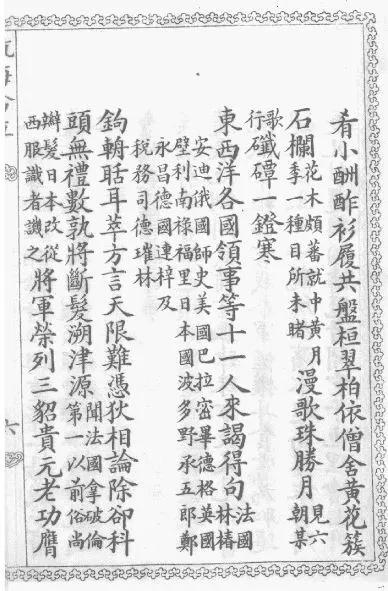 肴小酬酢衫履共盤桓翠柏依僧舍黃花簇
石欄花木頗蕃就中黃月季一種目所未睹漫歌珠勝月見六朝某
歌行殲磹一鐙寒
東西洋各國領事等十一人來謁得句法國林椿
安迪俄國師史美國巴拉密畢德格英國
壁利南祿福里日本國波多野承五郎鄭
永昌德國連梓及
稅務司德璀林
鉤輈聒耳萃方言天限難憑狄相論除卻科
頭無禮數孰將斷髮溯津源聞法國拿破倫第一以前俗尚
辮髮日本改從西服識者譏之將軍榮列三貂貴元老功膺
六